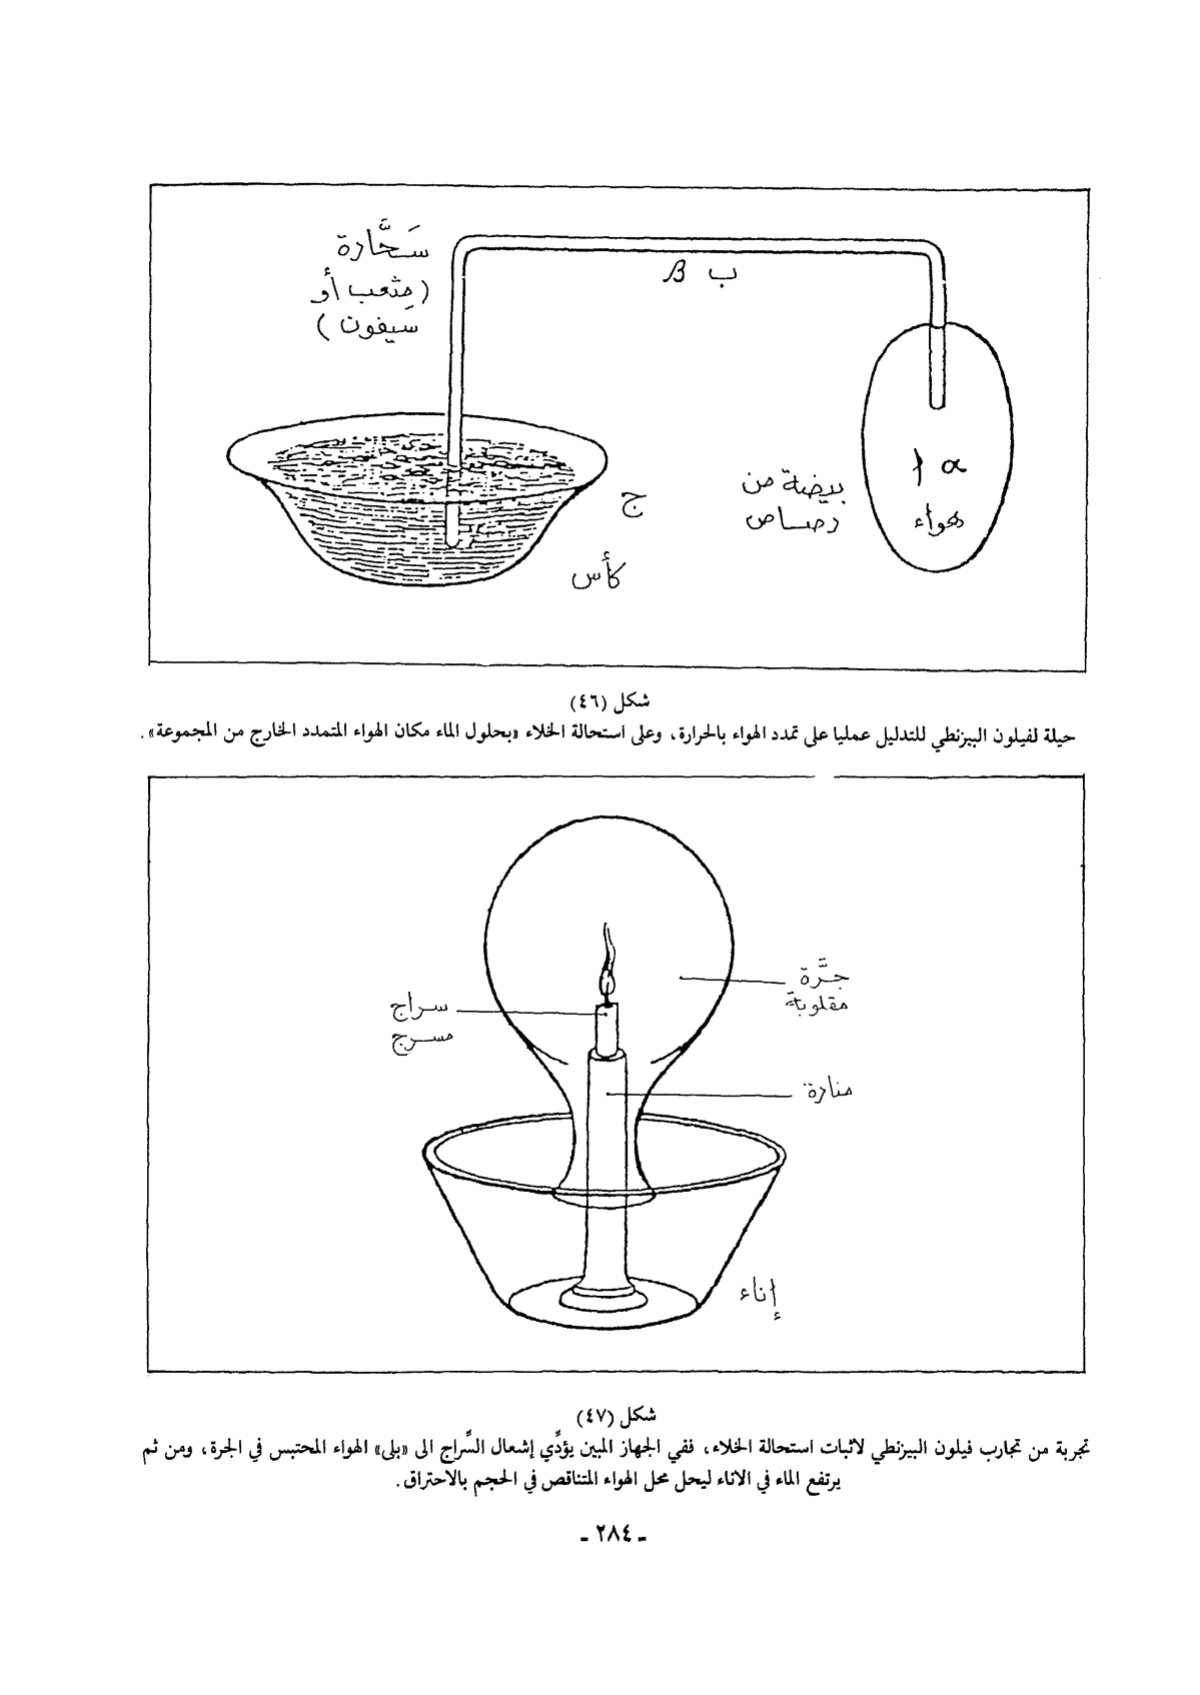 سَحَّارة
(مِثعب أو
سيفون)
ب β
α أ
هواء
بيضة من
رصاص
ج
كأس
شكل (٤٦)
حيلة لفيلون البيزنطي للتدليل عمليا على تمدد الهواء بالحرارة، وعلى استحالة الخلاء «بحلول الماء مكان الهواء المتمدد الخارج من المجموعة».
جرَّة
مقلوبة
سراج
مسرج
منارة
إناء
شكل (٤٧)
تجربة من تجارب فيلون البيزنطي لاثبات استحالة الخلاء، ففي الجهاز المبين يؤدِّي إشعال السِّراج الى «بلى» الهواء المحتبس في الجرة، ومن ثم
يرتفع الماء في الاناء ليحل محل الهواء المتناقص في الحجم بالاحتراق.
ـ ٢٨٤ ـ